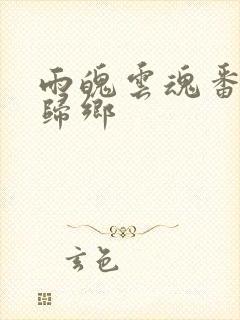 雨魄雲魂番
歸鄉
玄色